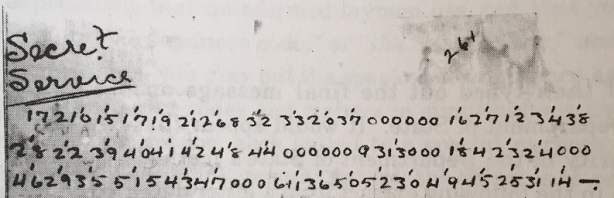 Secret
261
Service
1721015171921268323320370000001627123438
282239404142484400000093130001842324000
46293551544347000611365052304945253114 —.